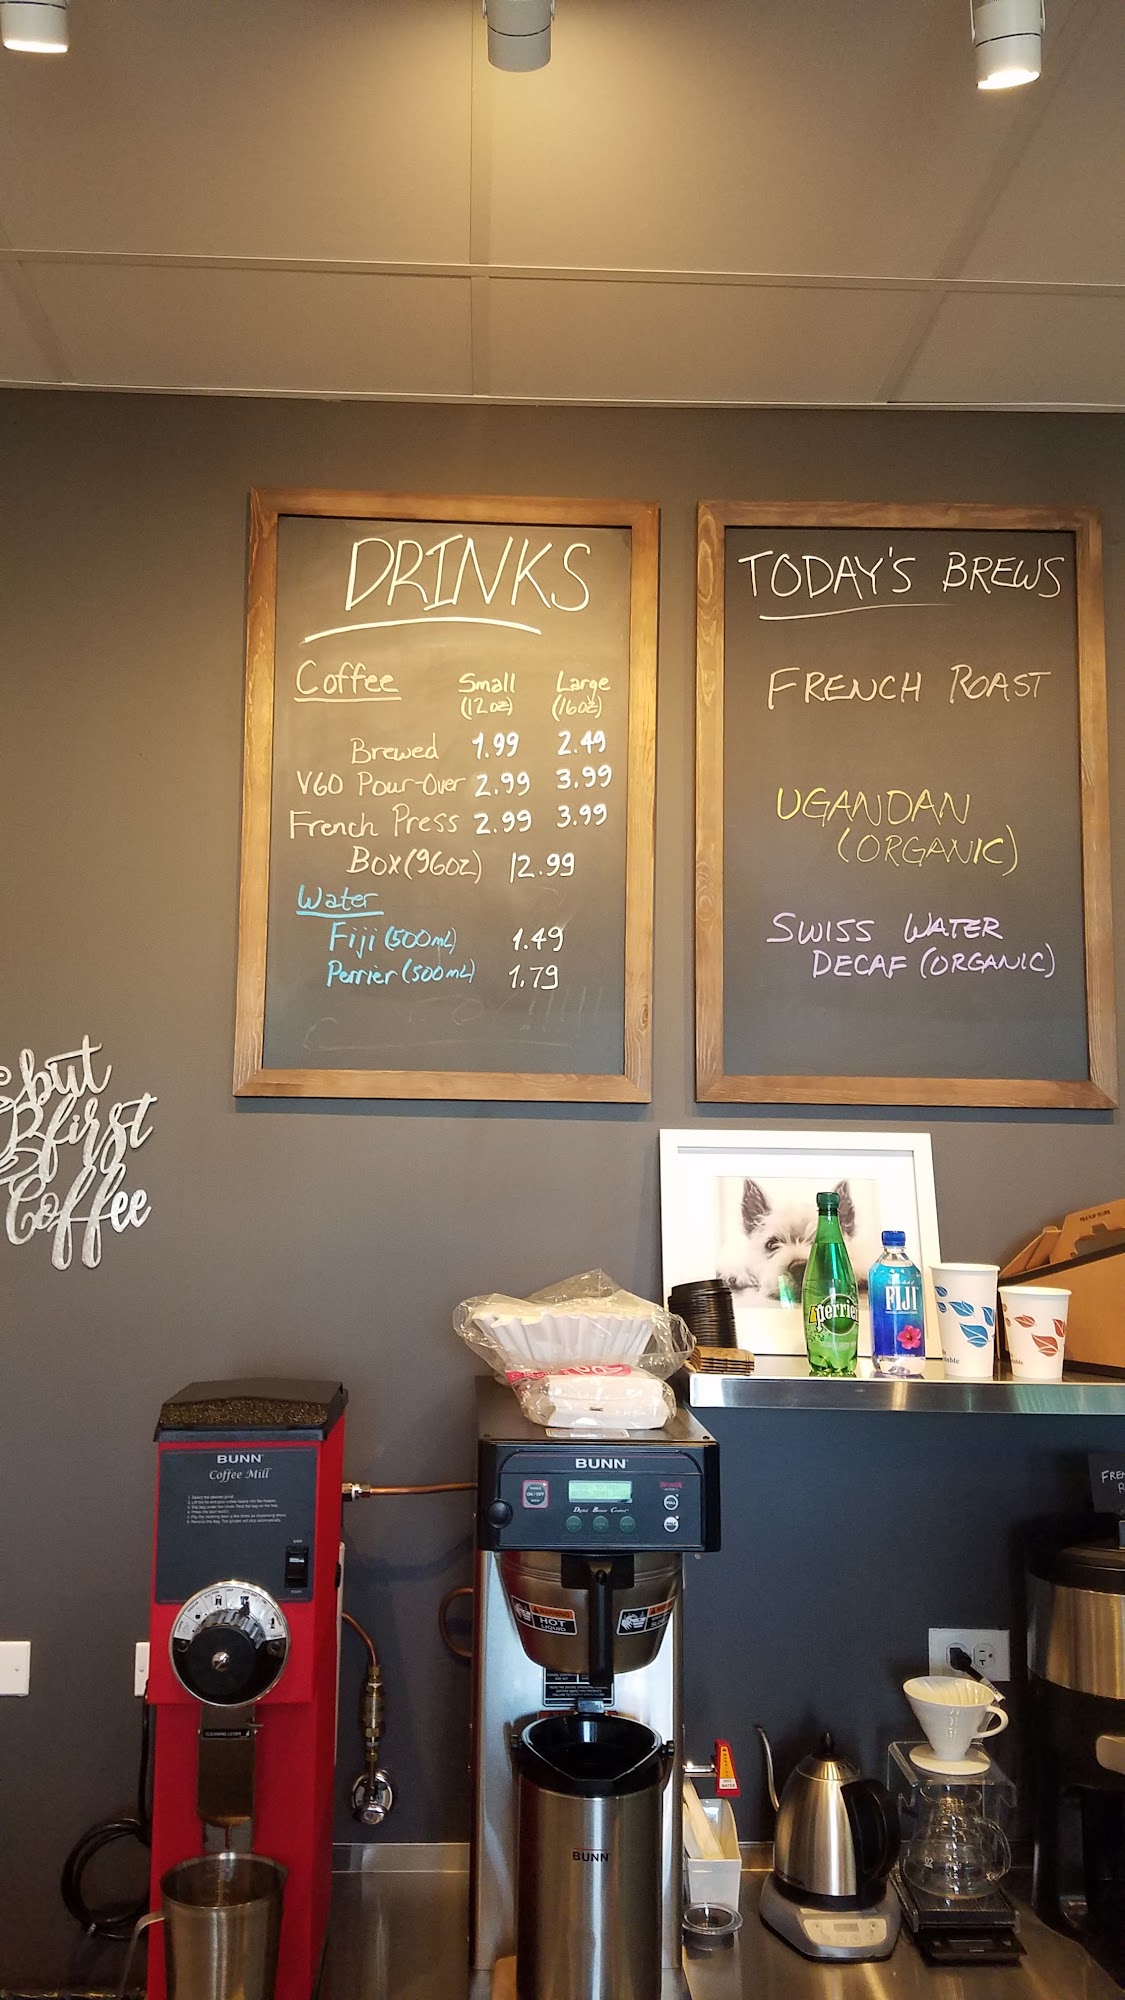 DRINKS
Coffee Small Large
(12oz) (16oz)
Brewed 1.99 2.49
V60 Pour-Over 2.99 3.99
French Press 2.99 3.99
Box (96oz) 12.99
Water
Fiji (500mL) 1.49
Perrier (500mL) 1.79
TODAY'S BREWS
FRENCH ROAST
UGANDAN
(ORGANIC)
SWISS WATER
DECAF (ORGANIC)
but
first
Coffee
perrier
FIJI
BUNN
Coffee Mill
CLEANING LEVER
BUNN
ON/OFF
WARNING
HOT
LIQUID
WARNING
BUNN
HOT
WATER